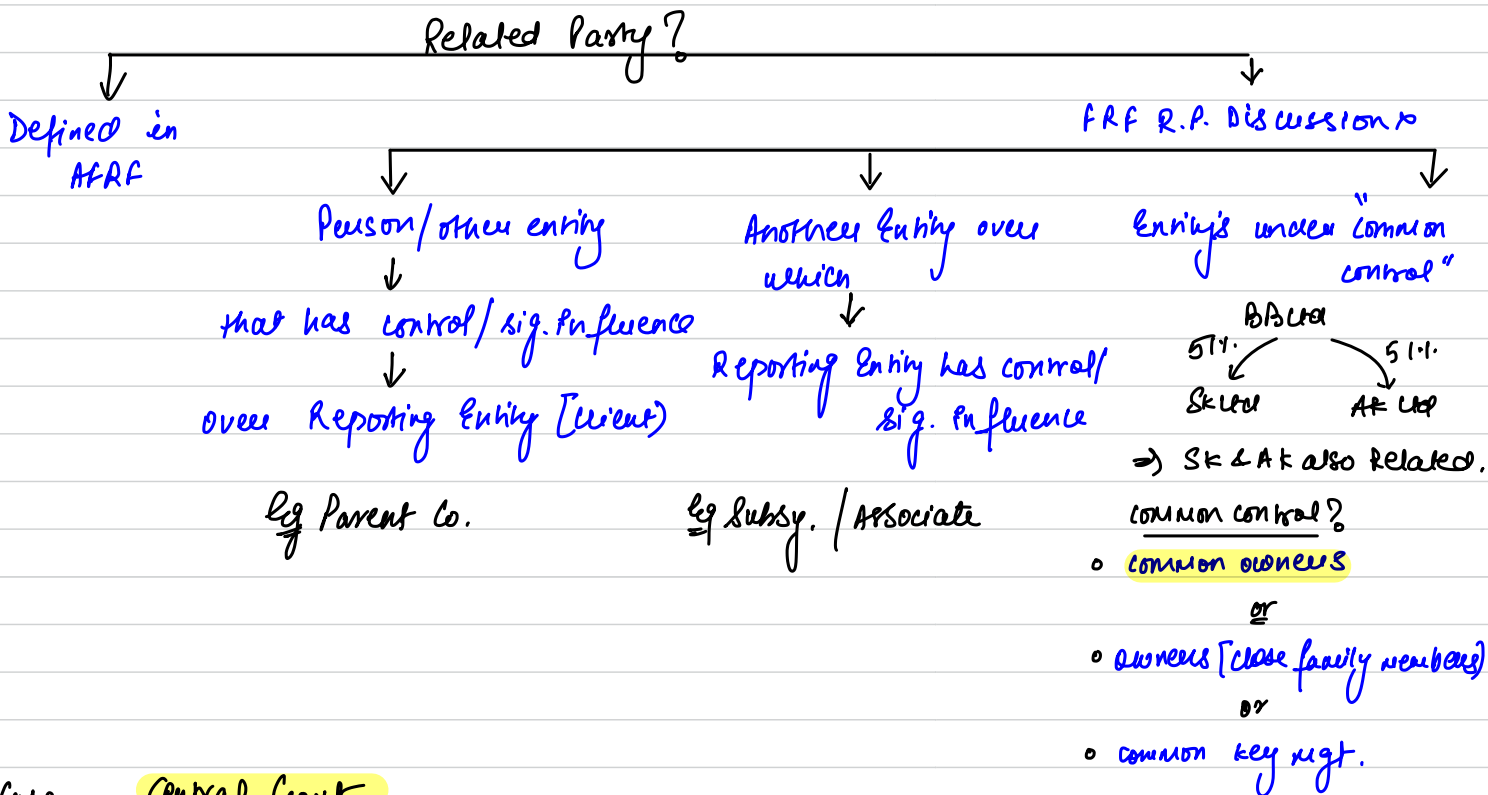 Related Party?
Defined in
AFRF
FRF R.P. Discussion
Person/other entity
that has control/sig. Influence
over Reporting Entity [Client)
Eg Parent Co.
Another Entity over
which
Reporting Entity has control/
sig. Influence
Eg Subsy. / Associate
Entity's under "common
control"
BB Ltd
51%. 51%.
SK Ltd AK Ltd
⇒ SK & AK also Related.
common control?
• common owners
or
• owners [close family members)
or
• common key mgt.